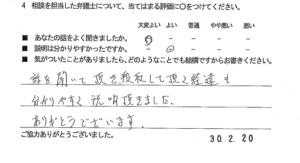 4 相談を担当した弁護士について、当てはまる評価に○をつけてください。
大変よい よい 普通 やや悪い 悪い
■ あなたの話をよく聞きましたか。
■ 説明は分かりやすかったですか。
■ 気がついたことがありましたら、どのようなことでも結構ですからお書きください。
話を聞いて頂き
分かりやすく説明頂きました。
ありがとうございます。
ご協力ありがとうございました。
30.2.20